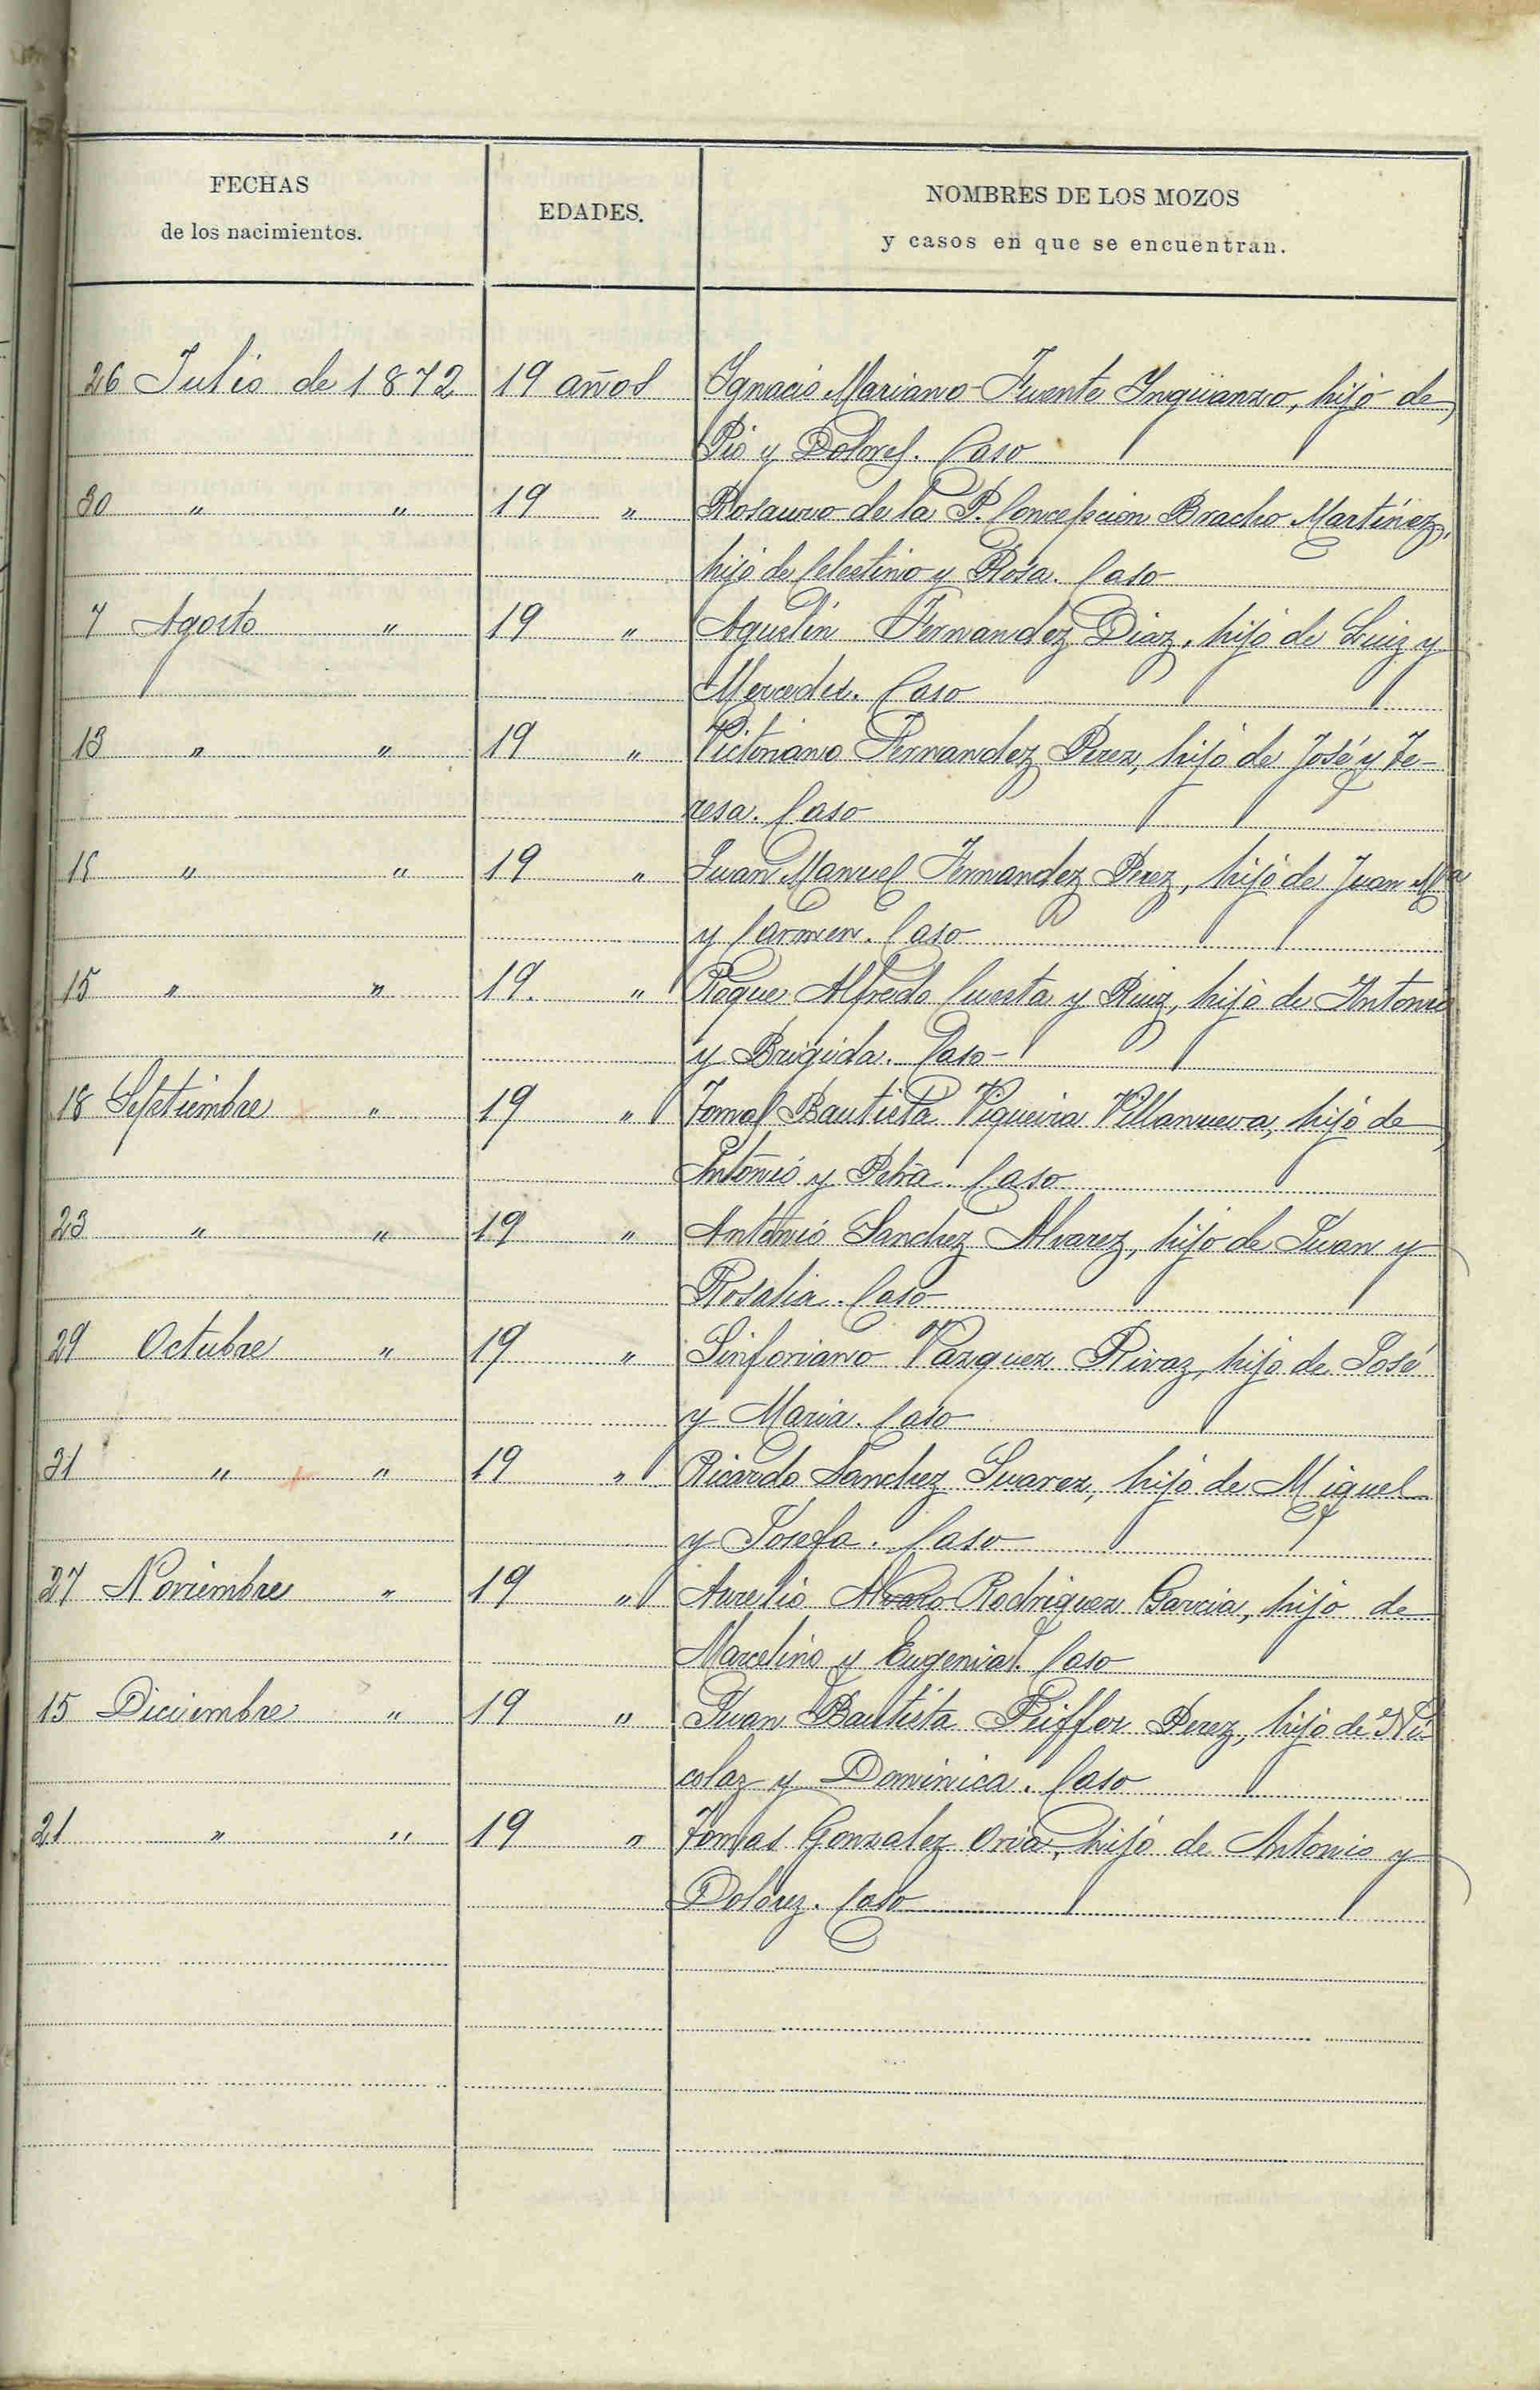 FECHAS
de los nacimientos.
EDADES.
NOMBRES DE LOS MOZOS
y casos en que se encuentran.
26 Julio de 1872 19 años Ignacio Mariano Fuente Inguanzo, hijo de
Pio y Dolores. Caso
30 " " 19 " Rosauro de la P. Concepcion Bracho Martínez,
hijo de Celestino y Rosa. Caso
7 Agosto " 19 " Agustin Fernandez Diaz, hijo de Luiz y
Mercedes. Caso
13 " " 19 " Victoriano Fernandez Perez, hijo de José y Te-
resa. Caso
15 " " 19 " Juan Manuel Fernandez Perez, hijo de Juan Ma
y Carmen. Caso
15 " " 19. " Roque Alfredo Cuesta y Ruiz, hijo de Antonio
y Brigida. Caso
18 Septiembre " 19 " Tomas Bautista Piqueira Villanueva, hijo de
Antonio y Petra. Caso
23 " " 19 " Antonio Sanchez Alvarez, hijo de Juan y
Rosalia. Caso
29 Octubre " 19 " Sinforiano Vazquez Rivaz, hijo de José
y Maria. Caso
31 " " 19 " Ricardo Sanchez Suarez, hijo de Miguel
y Josefa. Caso
27 Noviembre " 19 " Aurelio Rodriguez Garcia, hijo de
Marcelino y Eugenia. Caso
15 Diciembre " 19 " Juan Bautista Peiffer Perez, hijo de Ni-
colaz y Dominica. Caso
21 " " 19 " Tomas Gonzalez Oria, hijo de Antonio y
Dolorez. Caso